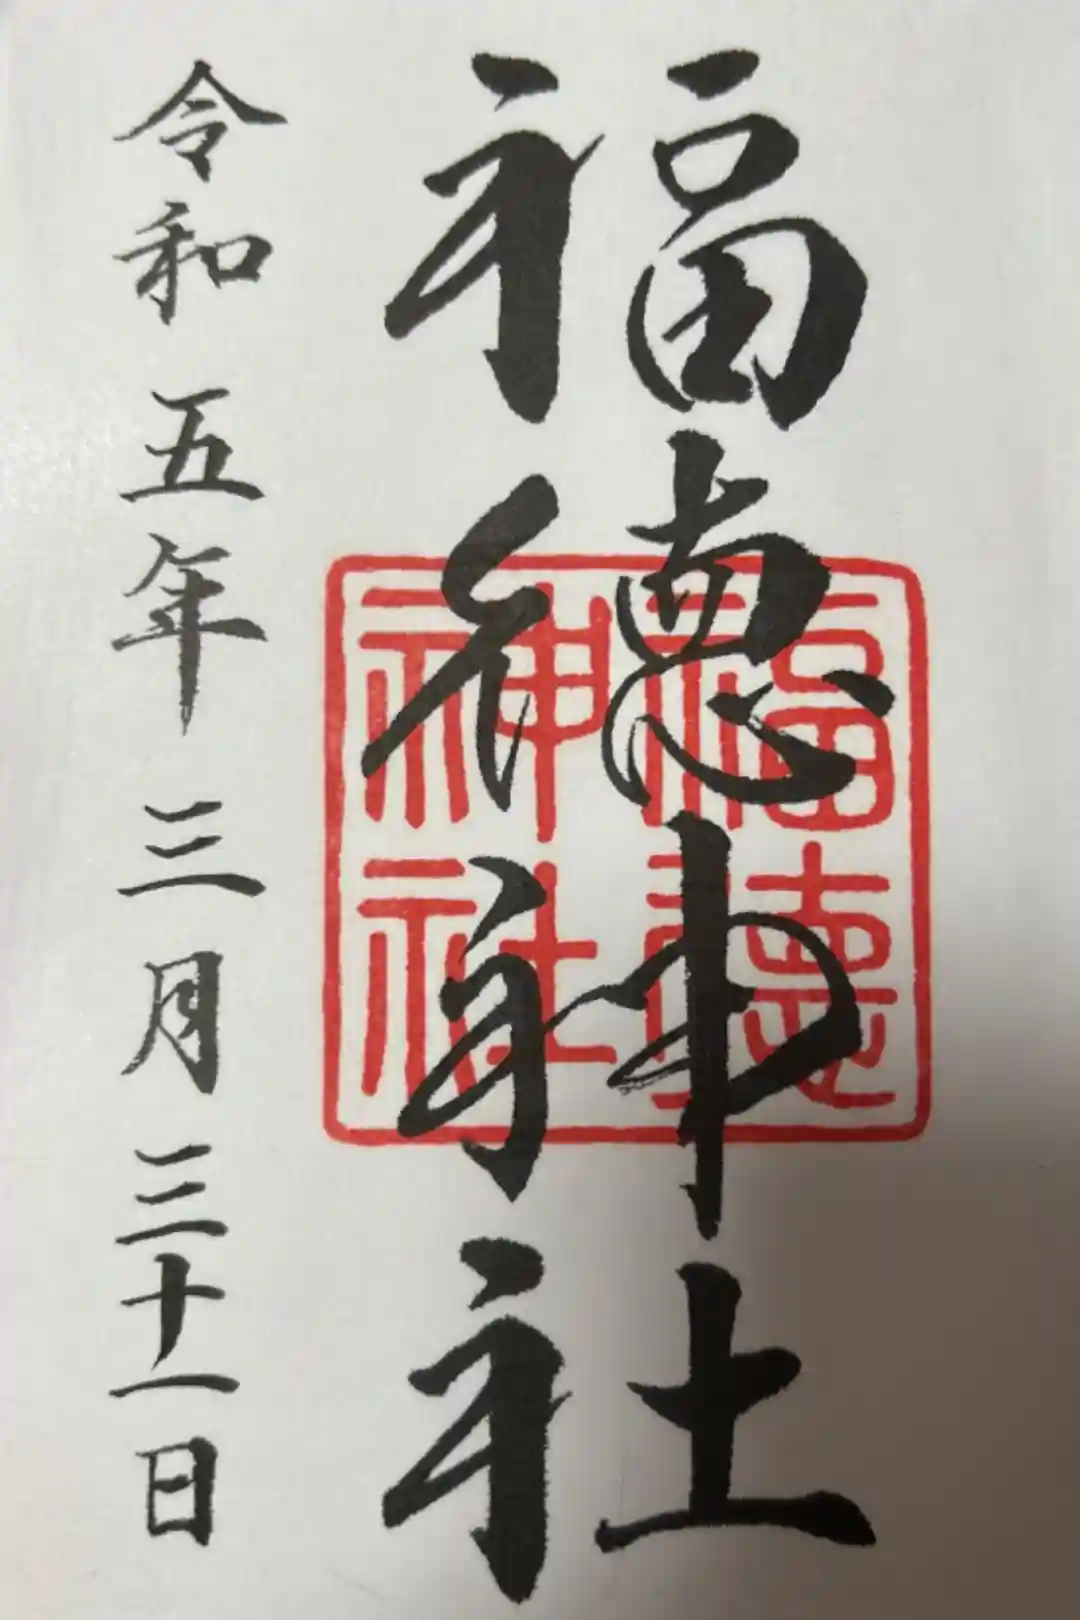 福徳神社
福徳
神社
令和五年三月三十一日